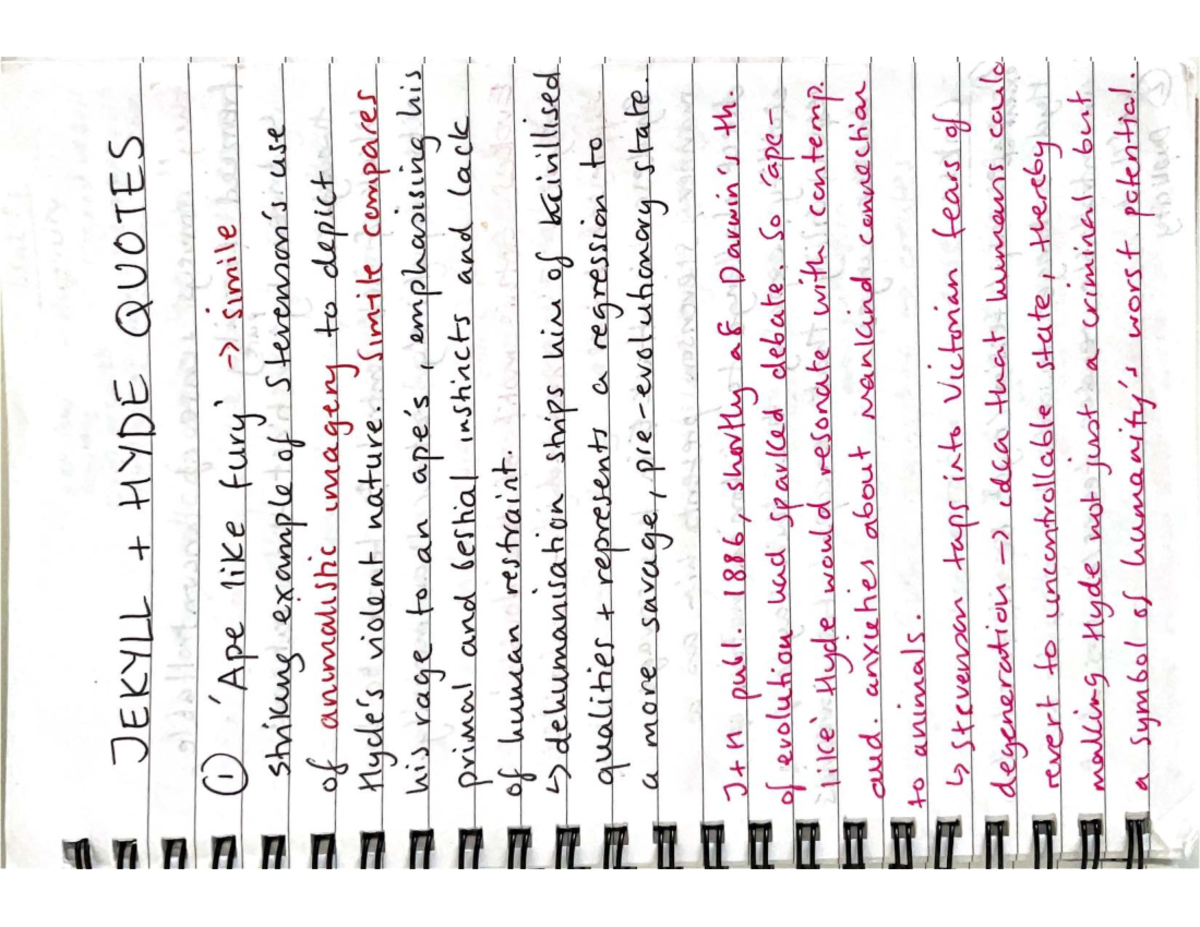 JEKYLL + HYDE QUOTES
① 'Ape like fury' -> simile
striking example of Stevenson's use
of animalistic imagery to depict
Hyde's violent nature. Simile compares
his rage to an ape's, emphasising his
primal and bestial instincts and lack
of human restraint.
↳ dehumanisation strips him of civillised
qualities + represents a regression to
a more savage, pre-evolutionary state.
J+H publ. 1886, shortly af Darwin's th.
of evolution had sparked debate so 'ape-
like' Hyde would resonate with contemp.
aud. anxieties about mankind connection
to animals.
↳ Stevenson taps into Victorian fears of
degeneration -> idea that humans could
revert to uncontrollable state, thereby
making Hyde not just a criminal but
a symbol of humanity's worst potential.